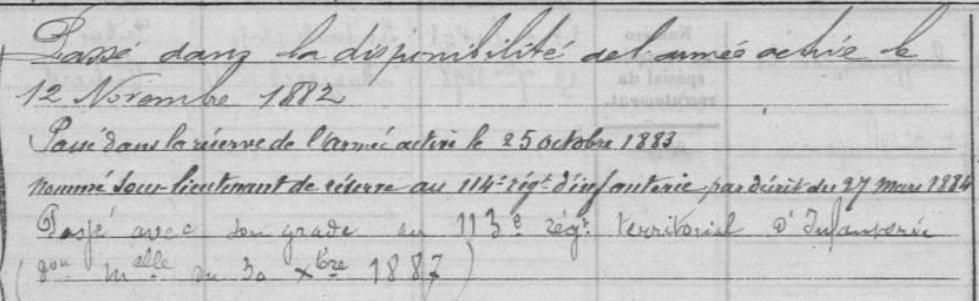 Passé dans la disponibilité de l'armée active le
12 Novembre 1882
Passé dans la réserve de l'armée active le 25 octobre 1883
nommé sous-lieutenant de réserve au 114e régt d'infanterie par décret du 27 mars 1884
Passé avec son grade au 113e régt territorial d'Infanterie
(Don Melle du 30 Xbre 1887)